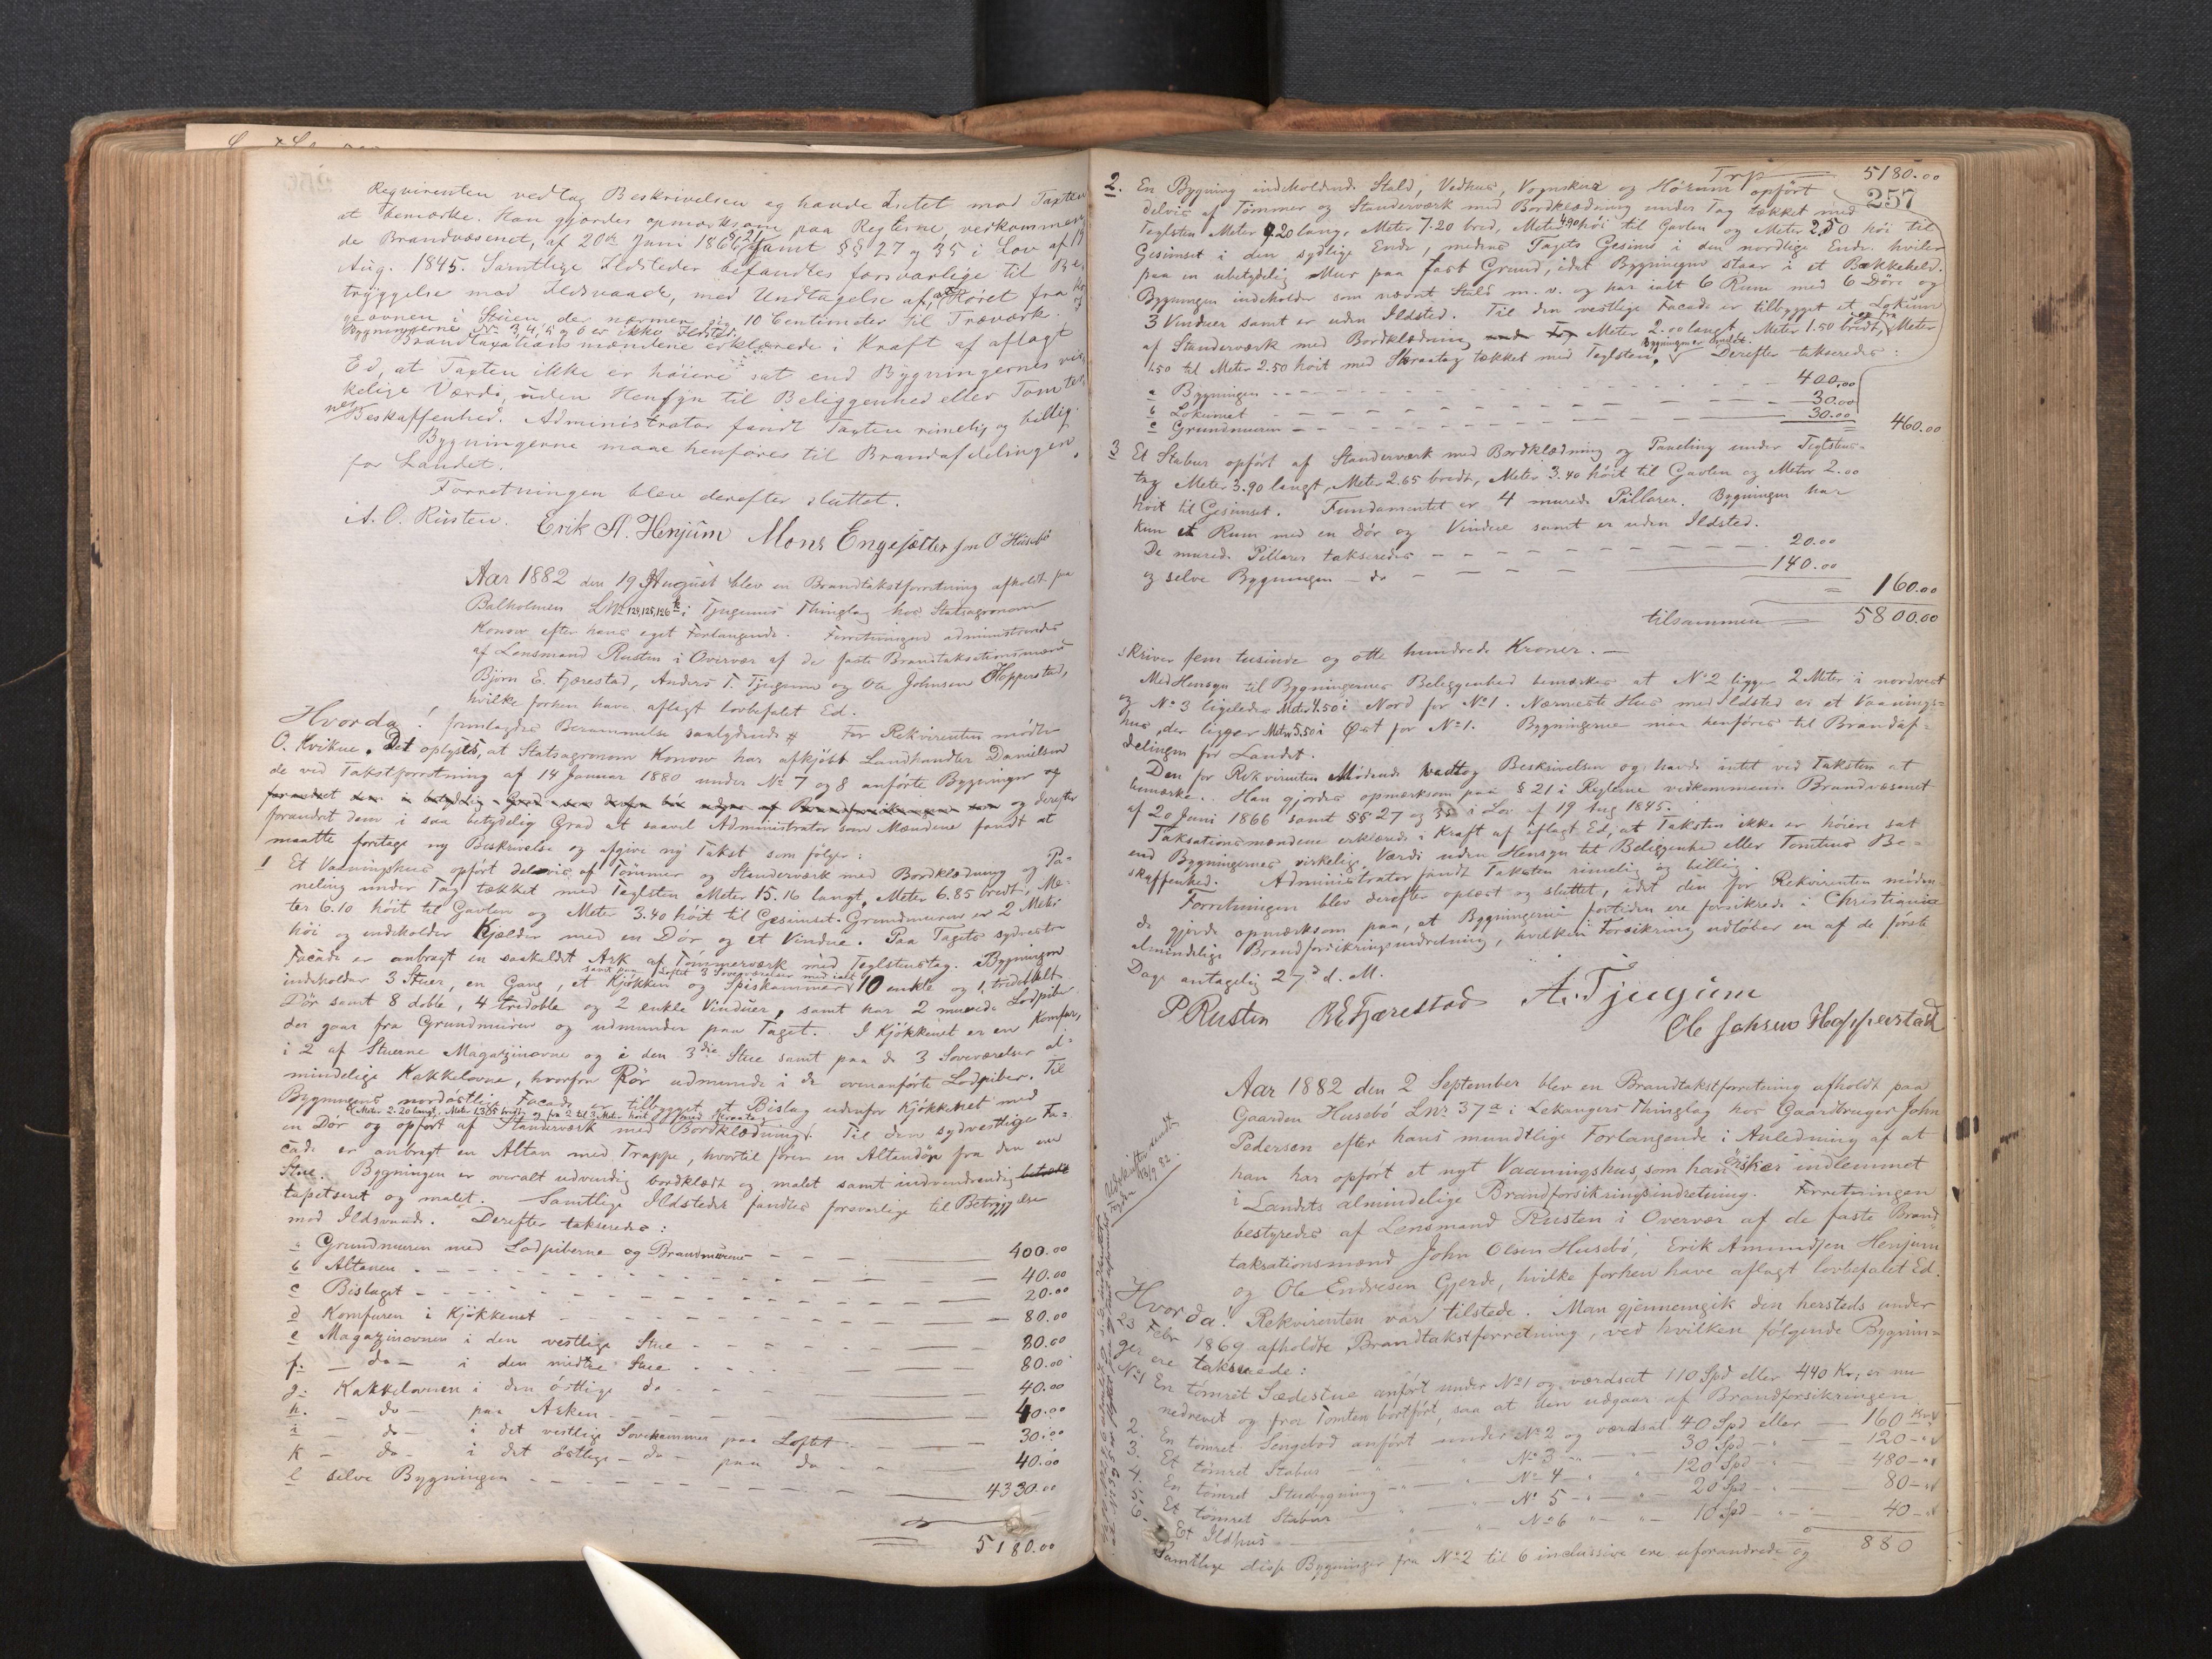 Reqvirenten vedtog Beskrivelsen og havde Intet mod Taxten
at bemærke. Han gjordes opmærksom paa Reglerne vedkommen
de Brandvæsenet, af 20de Juni 1866 § 21 samt §§ 27 og 35 i Lov af 19
Aug. 1845. Samtlige Ildsteder befandtes forsvarlige til Be-
tryggelse mod Ildsvaade, med Undtagelse af, at Røret fra
ovnen i Stuen der nærmer sig 10 Centimeter til Træværk.
Bygningerne No 3, 4, 5 og 6 er ikke Ildsted.
Brandtaxationsmændene erklærede i Kraft af aflagt
Ed, at Taxten ikke er høiere sat end Bygningernes vir-
kelige Værdi, uden Hensyn til Beliggenhed eller Tomter-
nes Beskaffenhed. Administrator fandt Taxten rimelig og billig.
Bygningerne maae henføres til Brandafdelingen
for Landet.
Forretningen blev derefter sluttet.
A. O. Rusten. Erik A. Henjum Mons Engesætter Jon O Husebø
Aar 1882 den 19 August blev en Brandtakstforretning afholdt paa
Balholmen LNo 124, 125, 126 i Tjugums Thinglag hos Statsagronom
Konow efter hans eget Forlangende. Forretningen administreredes
af Lensmand Rusten i Overvær af de faste Brandtaksationsmænd
Bjørn E. Fjærestad, Anders T. Tjugum og Ole Johnsen Hopperstad,
hvilke forhen have aflagt lovbefalet Ed.
Hvorda! fremlagdes Berammelse saalydende # For Rekvirenten mødte
O. Kvikne. Det oplystes, at Statsagronom Konow har afkjøbt Landhandler Danielsen
de ved Takstforretning af 14 Januar 1880 under No 7 og 8 anførte Bygninger og
og derefter
forandret dem i saa betydelig Grad at saavel Administrator som Mændene fandt at
maatte foretage ny Beskrivelse og afgive ny Takst som følger:
1 Et Vaaningshus opført delvis af Tømmer og Standerværk med Bordklædning og Pa-
neling under Tag tækket med Teglsten Meter 15.16 langt, Meter 6.85 bredt, Me-
ter 6.10 høit til Gavlen og Meter 3.40 høit til Gesimset. Grundmuren er 2 Meter
høi og indeholder Kjælder med en Dør og et Vindue. Paa Tagets sydvestre
Facade er anbragt en saakaldet Ark af Tømmerværk med Teglstenstag. Bygningen
samt paa Loftet 3 Soveværelser med ialt
indeholder 3 Stuer, en Gang, et Kjøkken og Spiskammer 10 enkle og 1 tredobbelt
Dør samt 8 doble, 4 tredoble og 2 enkle Vinduer, samt har 2 murede Lodpiber
der gaar fra Grundmuren og udmunder paa Taget. I Kjøkkenet er en Komfur,
i 2 af Stuerne Magazinovne og i den 3die Stue samt paa de 3 Soveværelser al-
mindelige Kakkelovne, hvorfra Rør udmunde i de ovenanførte Lodpiber. Til
Bygningens nordøstlige Facade er tilbygget et Bislag udenfor Kjøkkenet med
Meter 2.20 langt, Meter 1.35 bredt og fra 2 til 3 Meter høit med Skraatag
en Dør og opført af Standerværk med Bordklædning. Til den sydvestlige Fa-
cade er anbragt en Altan med Trappe, hvortil fører en Altandør fra den ene
Stue. Bygningen er overalt udvendig bordklædt og malet samt indvendig
tapetseret og malet. Samtlige Ildsteder fandtes forsvarlige til Betryggelse
mod Ildsvaade. Derefter takseredes:
a Grundmuren med Lodpiberne og Brandmurene 400.00
b Altanen 40.00
c Bislaget 20.00
d Komfuren i Kjøkkenet 80.00
e Magazinovnen i den vestlige Stue 80.00
f. do i den midtre Stue 80.00
g. Kakkelovnen i den østlige do 40.00
h. do paa Arken 40.00
i do i det vestlige Sovekammer paa Loftet 30.00
k do i det østlige do paa do 40.00
l selve Bygningen 4330.00
5180.00
Trp 5180.00
257
2. En Bygning indeholdende Stald, Vedhus, Vognskur og Hørum opført
delvis af Tømmer og Standerværk med Bordklædning under Tag tækket med
Teglsten Meter 9.20 lang, Meter 7.20 bred, Meter 4.90 høi til Gavlen og Meter 2.50 høi til
Gesimset i den sydlige Ende, medens Tagets Gesims i den nordlige Ende hviler
paa en ubetydelig Mur paa fast Grund, idet Bygningen staar i et Bakkeheld.
Bygningen indeholder som nævnt Stald m. v. og har ialt 6 Rum med 6 Døre og
3 Vinduer samt er uden Ildsted. Til den vestlige Facade er tilbygget et Lokum
af Standerværk med Bordklædning Meter 2.00 langt, Meter 1.50 bredt, og fra Meter
1.50 til Meter 2.50 høit med Skraatag tækket med Teglsten. Derefter takseredes:
a Bygningen 400.00
b Lokumet 30.00
c Grundmuren 30.00
460.00
3 Et Stabur opført af Standerværk med Bordklædning og Paneling under Teglstens-
tag Meter 3.90 langt, Meter 2.65 bredt, Meter 3.40 høit til Gavlen og Meter 2.00
høit til Gesimset. Fundamentet er 4 murede Pillarer. Bygningen har
kun et Rum med en Dør og Vindue samt er uden Ildsted.
De murede Pillarer takseredes 20.00
og selve Bygningen do 140.00
160.00
tilsammen 5800.00
skriver fem tusinde og otte hundrede Kroner.
Med Hensyn til Bygningernes Beliggenhed bemærkes at No 2 ligger 2 Meter i nordvest
og No 3 ligeledes Meter 4.50 i Nord for No 1. Nærmeste Hus med Ildsted er et Vaanings-
hus, der ligger Meter 5.50 i Øst for No 1. Bygningerne maa henføres til Brandaf-
delingen for Landet.
Den for Rekvirenten Mødende vedtog Beskrivelsen og havde intet ved Taksten at
bemærke. Han gjordes opmærksom paa § 21 i Reglerne vedkommende Brandvæsenet
af 20 Juni 1866 samt §§ 27 og 35 i Lov af 19 Aug 1845.
Taksationsmændene erklærede i Kraft af aflagt Ed, at Taksten ikke er høiere sat
end Bygningernes virkelige Værdi uden Hensyn til Beliggenhed eller Tomtens Be-
skaffenhed. Administrator fandt Taksten rimelig og billig.
Forretningen blev derefter oplæst og sluttet, idet den for Rekvirenten møden-
de gjorde opmærksom paa, at Bygningerne fortiden ere forsikrede i Christiania
almindelige Brandforsikringsindretning, hvilken Forsikring udløber en af de første
Dage antagelig 27d d. M.
P Rusten B E Fjærestad A. Tjugum
Ole Johnsen Hopperstad
Aar 1882 den 2 September blev en Brandtakstforretning afholdt paa
Gaarden Husebø LNr 37a i Lekangers Thinglag hos Gaardbruger John
Pedersen efter hans mundtlige Forlangende i Anledning af at
han har opført et nyt Vaaningshus, som han ønsker indlemmet
i Landets almindelige Brandforsikringsindretning. Forretningen
bestyredes af Lensmand Rusten i Overvær af de faste Brand-
taksationsmænd John Olsen Husebø, Erik Amundsen Henjum
og Ole Endresen Gjerde, hvilke forhen have aflagt lovbefalet Ed.
Hvorda! Rekvirenten var tilstede. Man gjennemgik den hersteds under
23 Febr 1869 afholdte Brandtakstforretning, ved hvilken følgende Bygnin-
ger ere takserede:
No 1 En tømret Sædestue anført under No 1 og værdsat 110 Spd eller 440 Kr, er nu
nedrevet og fra Tomten bortført, saa at den udgaar af Brandforsikringen
2. En tømret Sengebod anført under No 2 og værdsat 40 Spd eller 160 Kr
3. Et tømret Stabur No 3 30 Spd 120
4. En tømret Stuebygning No 4 120 Spd 480
5. Et tømret Stabur No 5 20 Spd 80
6. Et Ildhus No 6 10 Spd 40
880
Samtlige disse Bygninger fra No 2 til 6 inclusive ere uforandrede og